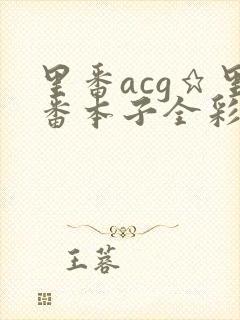 里番acg☆里
番本子全彩
王蓉